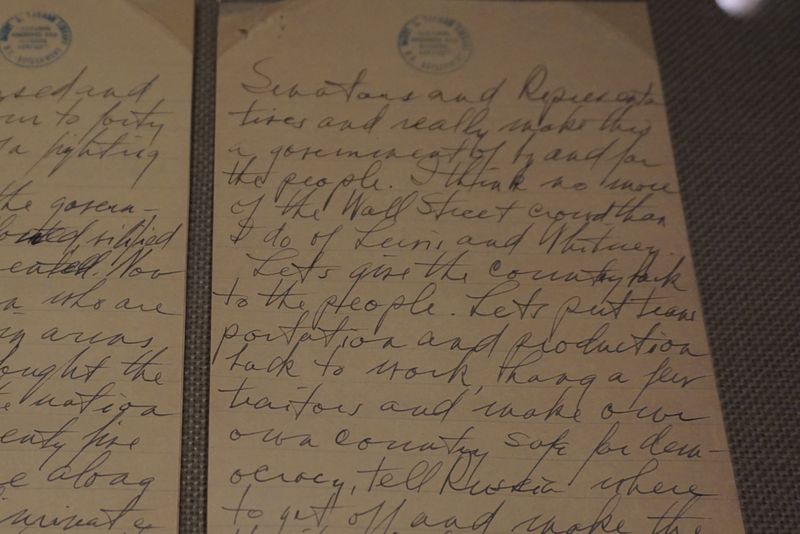 sed and
our to forty
a fighting
the govern-
vilified
Now
who are
in arms
ought the
nation
enty five
e along
HARRY S. TRUMAN LIBRARY
Senators and Representa
tives and really make this
a government of by and for
the people. I think no more
of the Wall Street crowd than
I do of Lewis and Whitney.
Let's give the country back
to the people. Lets put trans
portation and production
back to work, hang a few
traitors and make our
own country safe for dem-
ocracy, tell Russia where
to get off and make the